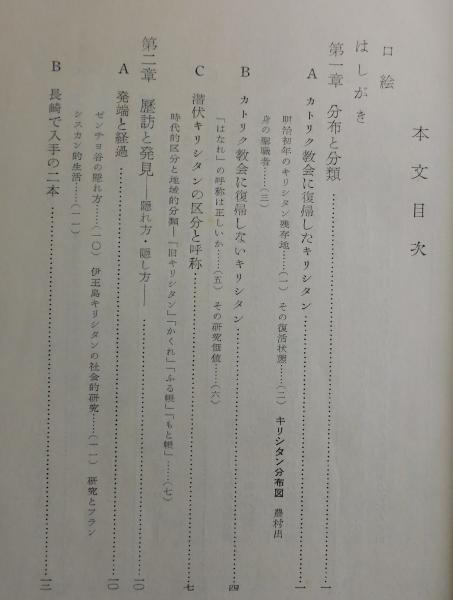 本文目次
口絵
はしがき
第一章 分布と分類……一
A カトリク教会に復帰したキリシタン……一
明治初年のキリシタン残存地……(一) その復活状態……(二) キリシタン分布図 農村出
身の聖職者……(三)
B カトリク教会に復帰しないキリシタン……四
「はなれ」の呼称は正しいか……(五) その研究価値……(六)
C 潜伏キリシタンの区分と呼称……七
時代的区分と地域的分類―「旧キリシタン」「かくれ」「ふる帳」「もと帳」……(七)
第二章 歴訪と発見――隠れ方・隠し方――……一〇
A 発端と経過……一〇
ゼンチョ谷の隠れ方……(一〇) 伊王島キリシタンの社会的研究……(一一) 研究とフラン
シスカン的生活……(一一)
B 長崎で入手の二本……一三